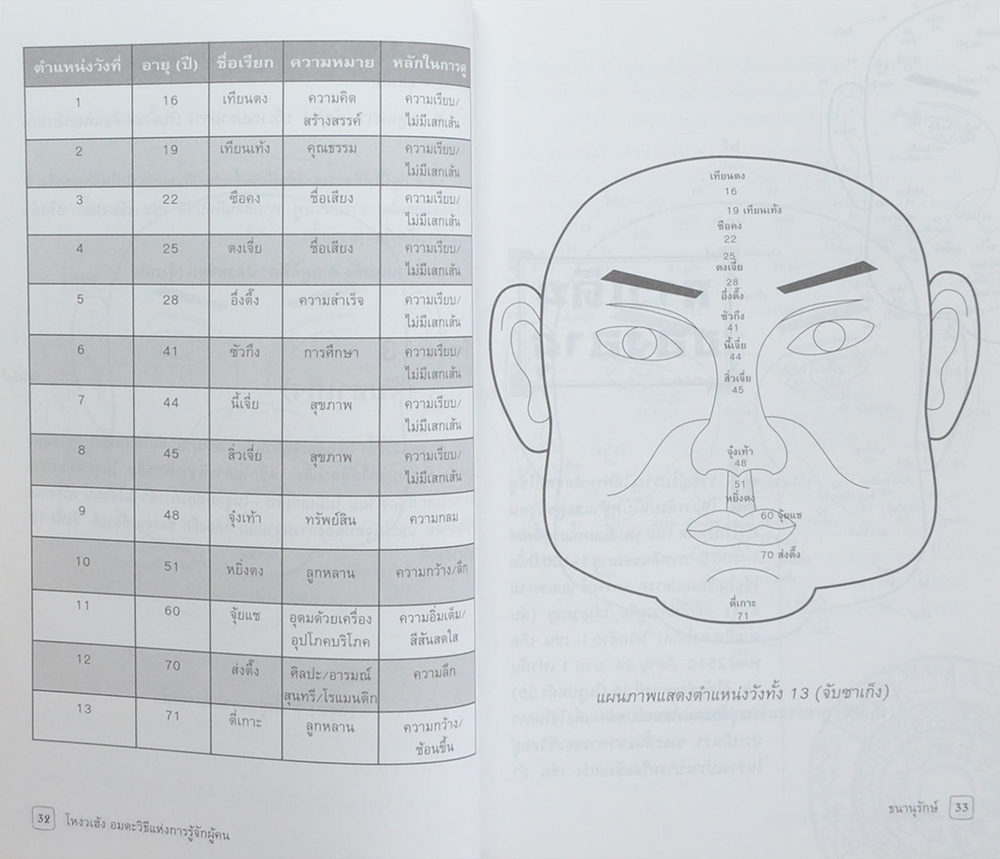 ตำแหน่งวังที่ อายุ (ปี) ชื่อเรียก ความหมาย หลักในการดู
1 16 เทียนตง ความคิดสร้างสรรค์ ความเรียบ/ไม่มีเสกเส้น
2 19 เทียนเท้ง คุณธรรม ความเรียบ/ไม่มีเสกเส้น
3 22 ซือคง ชื่อเสียง ความเรียบ/ไม่มีเสกเส้น
4 25 ตงเจี่ย ชื่อเสียง ความเรียบ/ไม่มีเสกเส้น
5 28 อึ่งตึ๊ง ความสำเร็จ ความเรียบ/ไม่มีเสกเส้น
6 41 ซัวกึง การศึกษา ความเรียบ/ไม่มีเสกเส้น
7 44 นี้เจี่ย สุขภาพ ความเรียบ/ไม่มีเสกเส้น
8 45 สิ่วเจี่ย สุขภาพ ความเรียบ/ไม่มีเสกเส้น
9 48 จุ๋งเท้า ทรัพย์สิน ความกลม
10 51 หยิ่งตง ลูกหลาน ความกว้าง/ลึก
11 60 จุ้ยแซ อุดมด้วยเครื่องอุปโภคบริโภค ความอิ่มเต็ม/สีสันสดใส
12 70 ส่งตึ๊ง ศิลปะ/อารมณ์สุนทรี/โรแมนติก ความลึก
13 71 ตี่เกาะ ลูกหลาน ความกว้าง/ซ้อนขึ้น
32 โหงวเฮ้ง อมตะวิธีแห่งการรู้จักผู้คน
เทียนตง
16
19 เทียนเท้ง
ซือคง
22
25
ตงเจี่ย
28
อึ่งตึ๊ง
ซัวกึง
41
นี้เจี่ย
44
สิ่วเจี่ย
45
จุ๋งเท้า
48
51
หยิ่งตง
60 จุ้ยแซ
70 ส่งตึ๊ง
ตี่เกาะ
71
แผนภาพแสดงตำแหน่งวังทั้ง 13 (จับซาเก็ง)
ธนานุรักษ์ 33